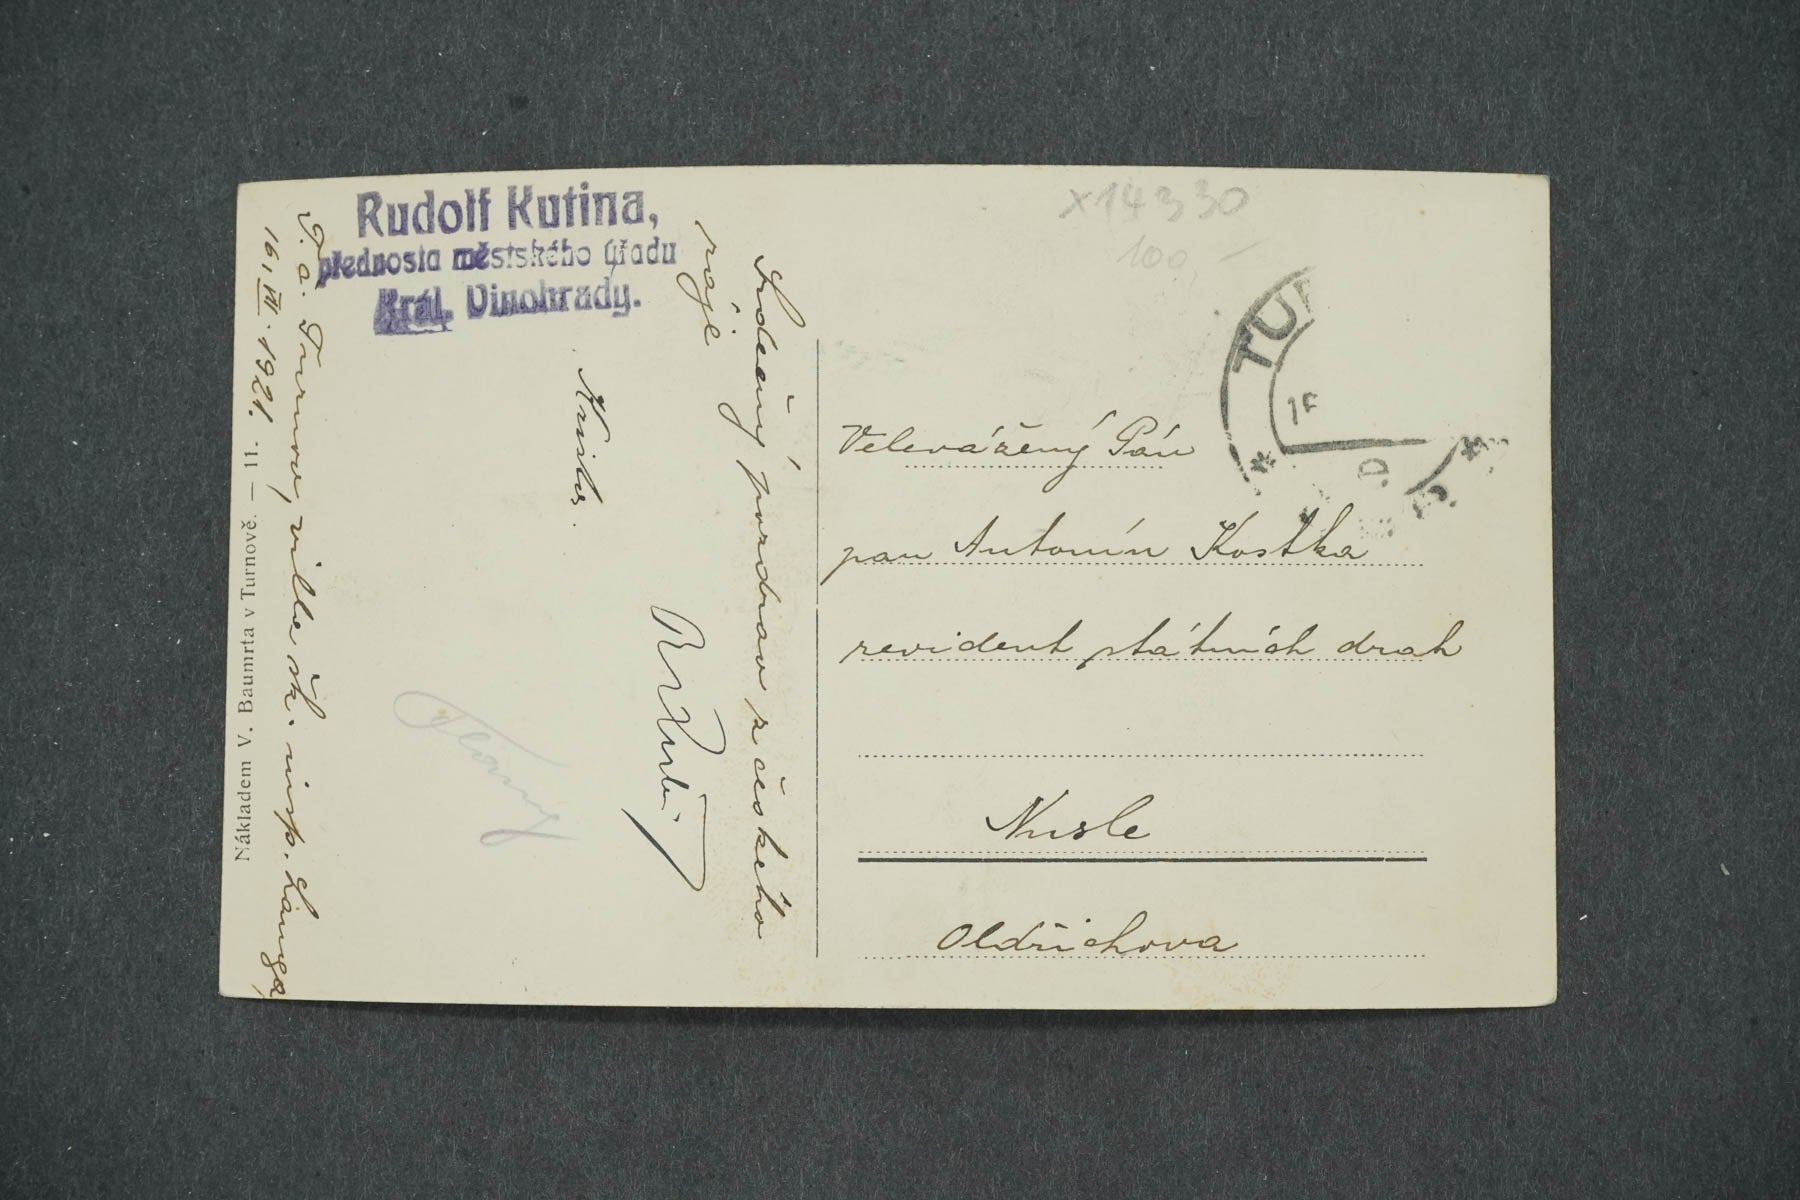 Rudolf Kutina,
přednosta městského úřadu
Král. Vinohrady.
Srdečný pozdrav z českého
ráje
R Kutina
T. č. Turnov, villa šk. insp. Langa,
16. VII. 1921.
Nákladem V. Baumrta v Turnově. — 11.
x14330
100,-
TUR
Velevážený Pán
pan Antonín Kostka
revident státních drah
Nusle
Oldřichova